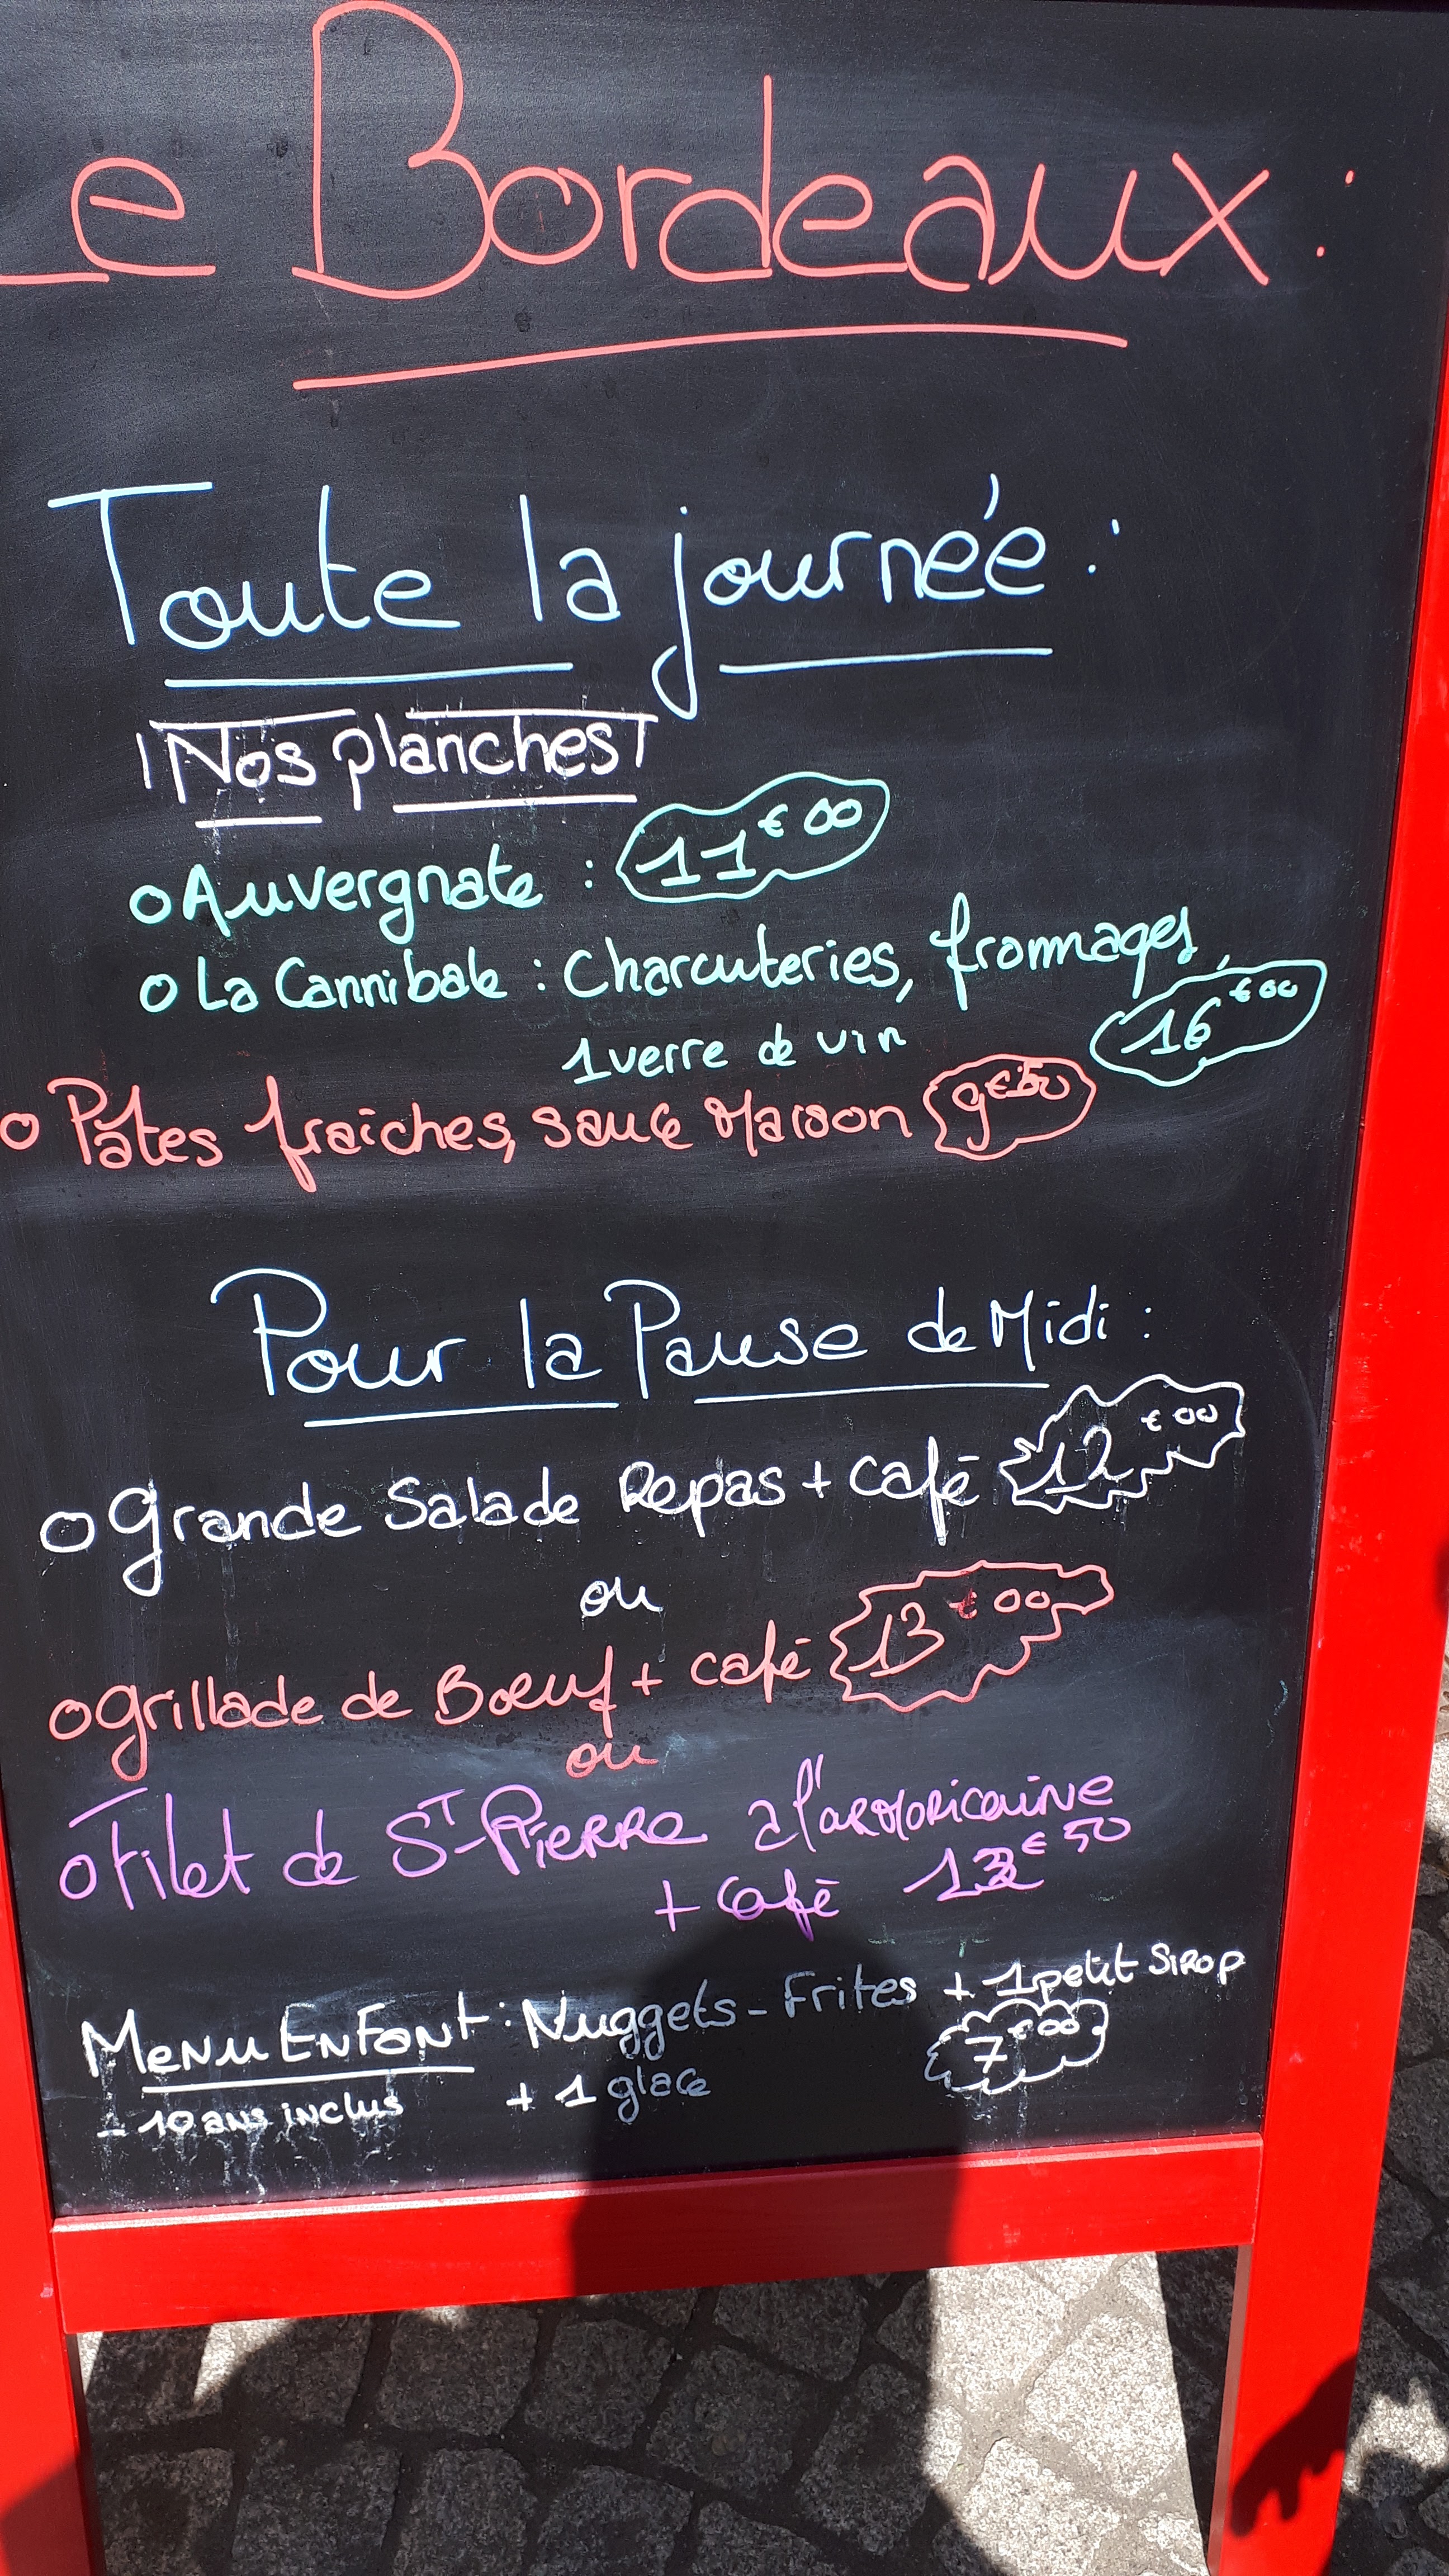 Le Bordeaux :
Toute la journée :
Nos planches
o Auvergnate : 11€00
o La Cannibale : Charcuteries, frommages,
1 verre de vin 16€00
o Pâtes fraîches, sauce Maison 9€50
Pour la Pause de Midi :
o Grande Salade Repas + café 12€00
ou
o Grillade de Boeuf + café 13€00
ou
o Filet de ST-Pierre a l'armoricaine
+ Café €50
Menu Enfant : Nuggets - Frites + 1 petit Sirop
- 10 ans inclus + 1 glace 7€00